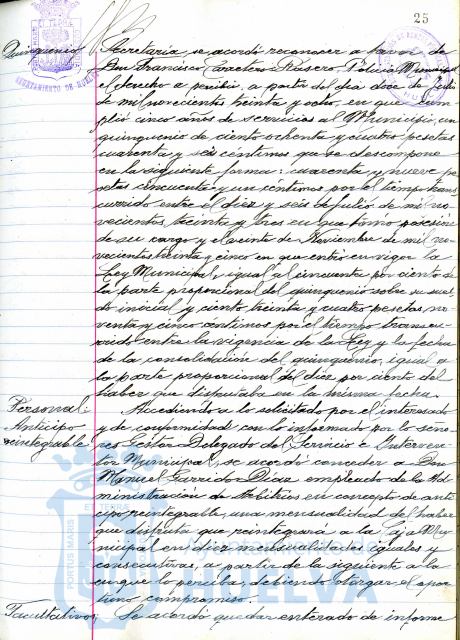 25
Quinquenio
Secretaría se acordó reconocer a favor de
Don Francisco Carretero Rasero, Policía Municipal
el derecho a percibir, a partir del día doce de Julio
de mil novecientos treinta y ocho, en que cum-
plió cinco años de servicios al Municipio, un
quinquenio de ciento ochenta y cuatro pesetas
cuarenta y seis céntimos que se descompone
en la siguiente forma: cuarenta y nueve pe-
setas cincuenta y un céntimos por el tiempo trans-
currido entre el diez y seis de Julio de mil no-
vecientos treinta y tres en que tomó posesión
de su cargo y el veinte de Noviembre de mil no-
vecientos treinta y cinco en que entró en vigor la
Ley Municipal, igual al cincuenta por ciento de
la parte proporcional del quinquenio sobre su suel-
do inicial y ciento treinta y cuatro pesetas no-
venta y cinco céntimos por el tiempo transcu-
rrido entre la vigencia de la Ley y la fecha
de la consolidación del quinquenio, igual a
la parte proporcional del diez por ciento del
haber que disfrutaba en la misma fecha.
Personal:
Anticipo
reintegrable
Accediendo a lo solicitado por el interesado
y de conformidad con lo informado por lo seño-
res Gestor Delegado del Servicio e Interven-
tor Municipal, se acordó conceder a Don
Manuel Garrido Díaz empleado de la Ad-
ministración de Arbitrios en concepto de anti-
cipo reintegrable, una mensualidad del haber
que disfruta que reintegrará a la Caja Mu-
nicipal en diez mensualidades iguales y
consecutivas, a partir de la siguiente a la
en que lo perciba, debiendo otorgar el opor-
tuno compromiso.
Facultativos
Se acordó quedar enterado de informe
AYUNTAMIENTO DE HUELVA
PORTUS MARIS
HUELVA